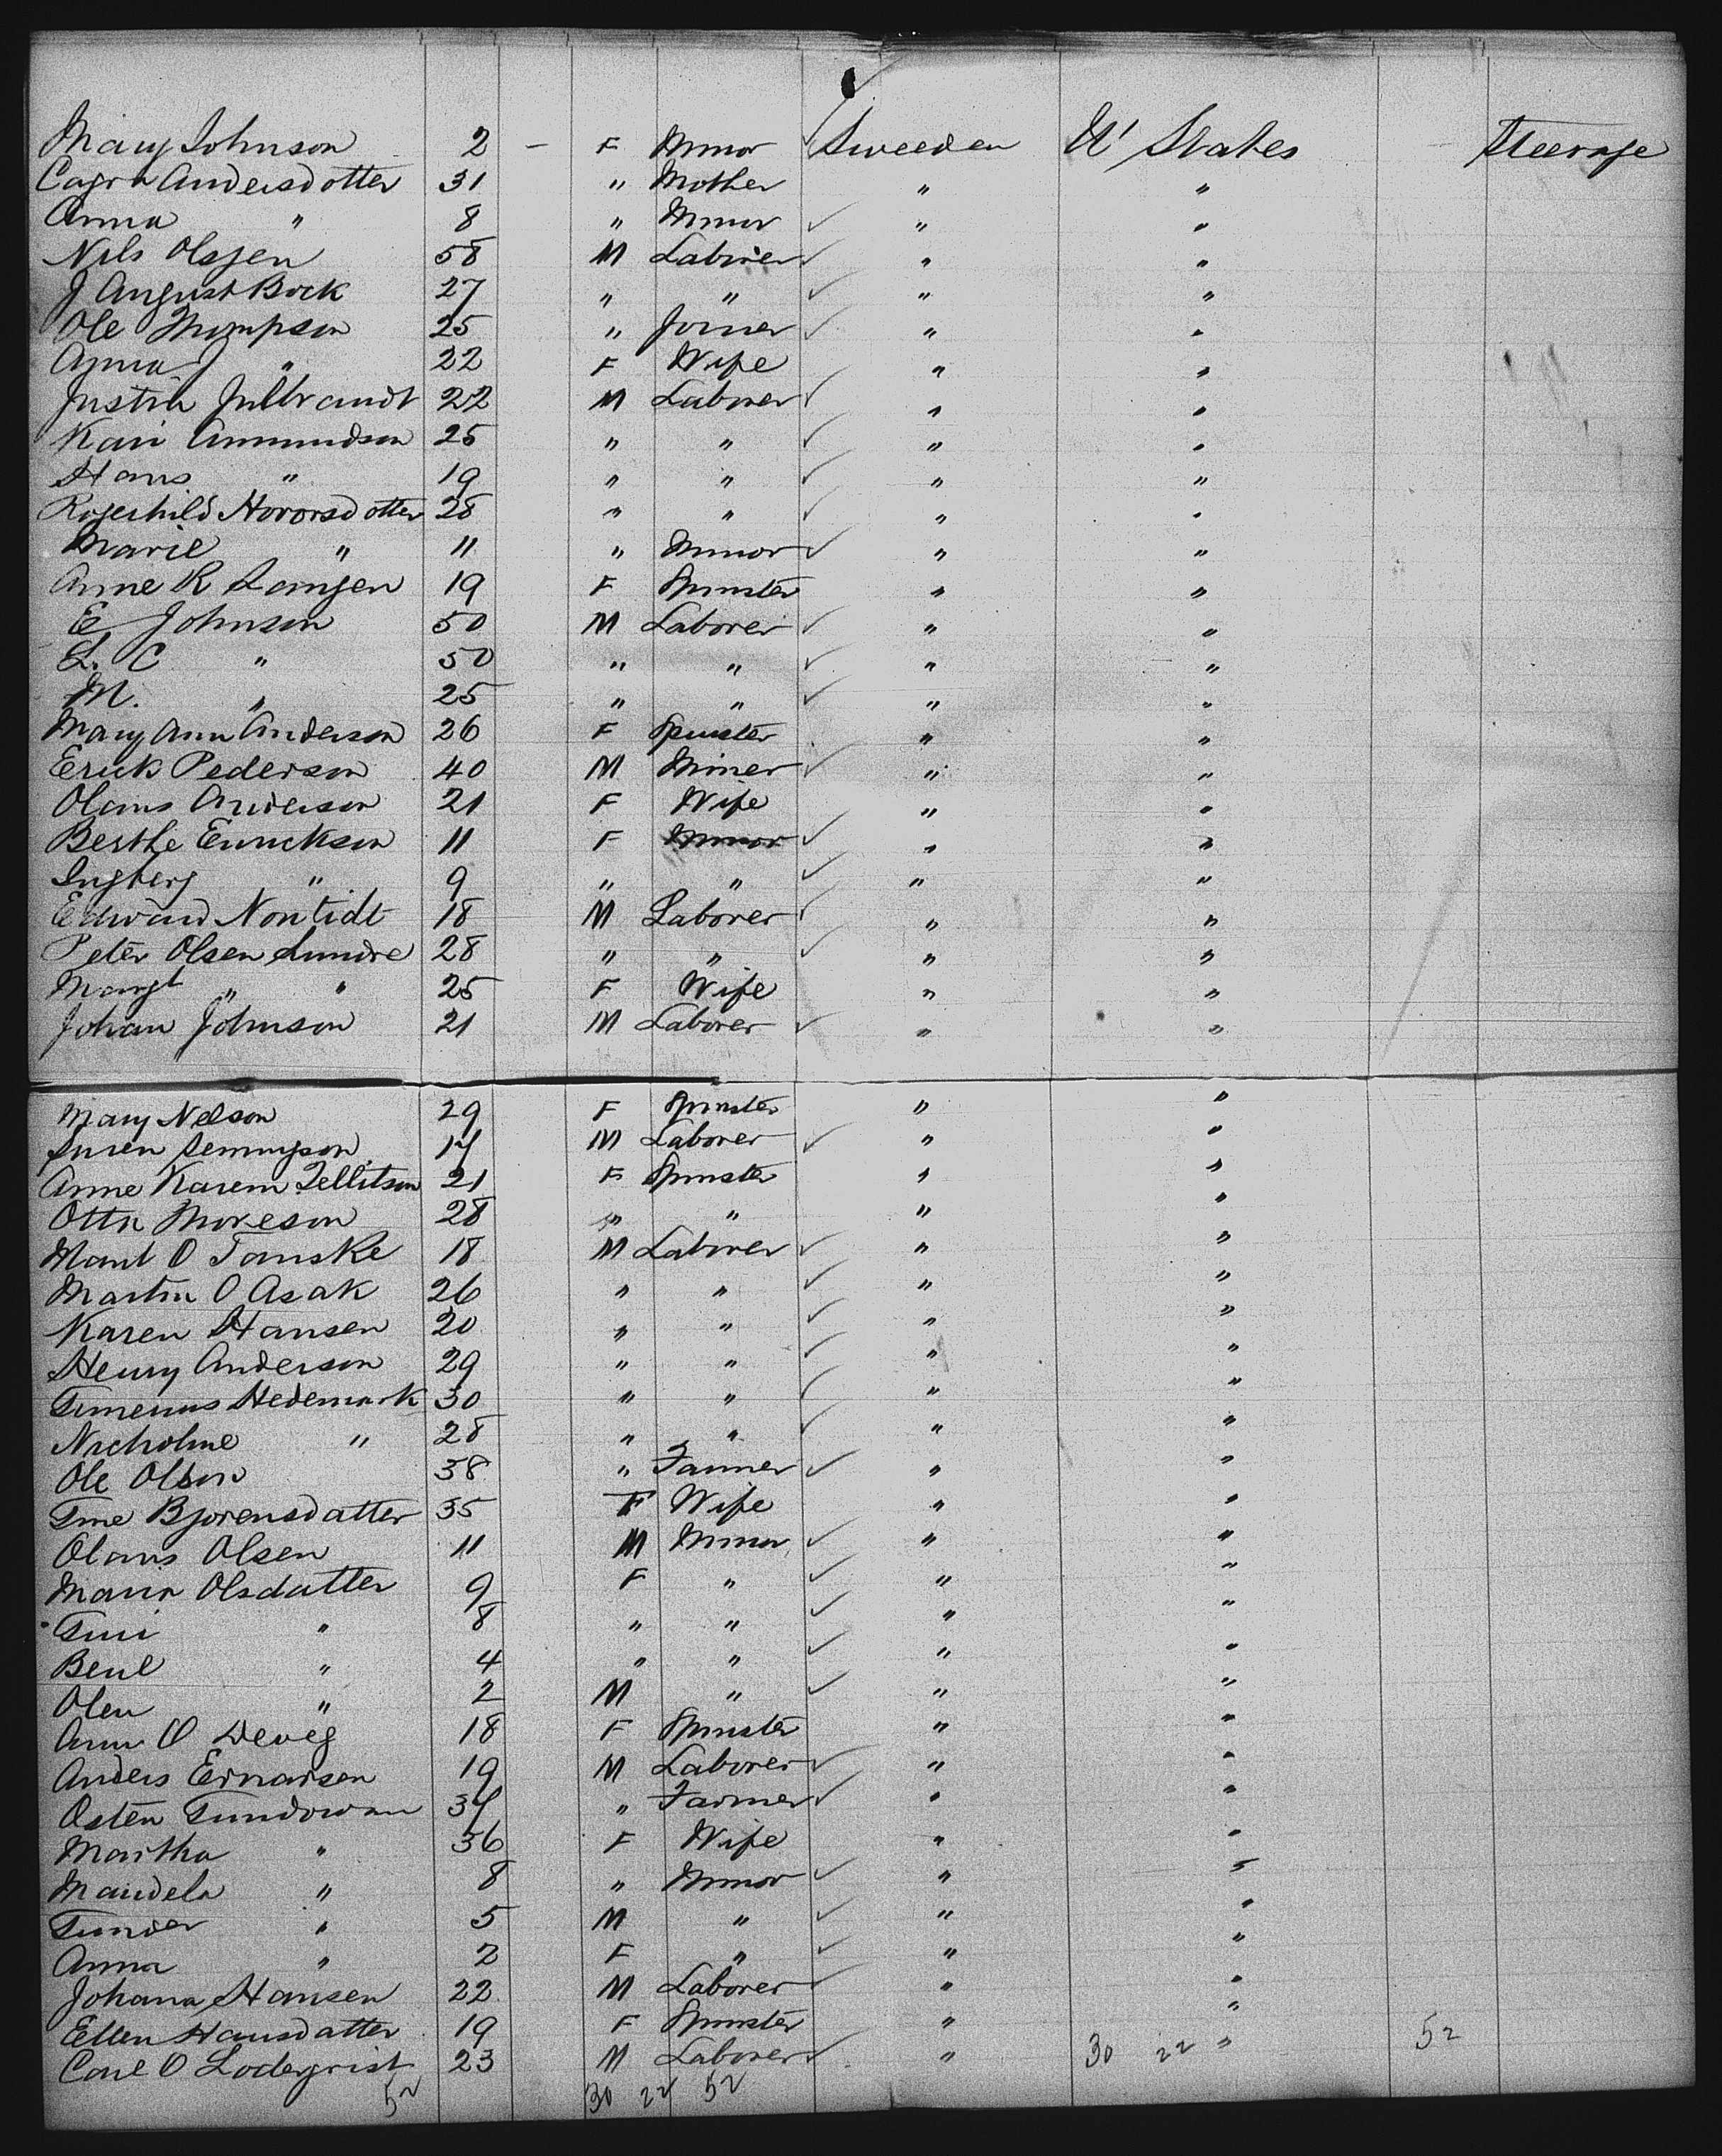 Mary Johnson 2 – F Minor Sweeden U' States Steerage
Cajsa Andersdotter 31 " Mother " "
Anna " 8 " Minor " "
Nils Olsjen 58 M Laborer " "
J August Bock 27 " " " "
Ole Thompson 25 " Joiner " "
Anna J " 22 F Wife " "
Justin Jullbrandt 22 M Laborer " "
Kari Ammundson 25 " " " "
Hans " 19 " " " "
Rogerhild Hovorsdotter 28 " " " "
Marie " 11 " Minor " "
Anne R Langen 19 F Spinster " "
E Johnson 50 M Laborer " "
L. C " 50 " " " "
M. " 25 " " " "
Mary Ann Anderson 26 F Spinster " "
Erick Pederson 40 M Miner " "
Olaus Anderson 21 F Wife " "
Berthe Enrickson 11 F Minor " "
Ingberg " 9 " " " "
Edward Nontidt 18 M Laborer " "
Peter Olsen Lundre 28 " " " "
Margt " " 25 F Wife " "
Johan Johnson 21 M Laborer " "
Mary Nelson 29 F Spinster " "
Suren 17 M Laborer " "
Anne Karem Tellitson 21 F Spinster " "
Otta Moreson 28 " " " "
Mant O Tanske 18 M Laborer " "
Martin O Asak 26 " " " "
Karen Hansen 20 " " " "
Henry Anderson 29 " " " "
Hedemark 30 " " " "
Nicholine " 28 " " " "
Ole Olson 38 " Farmer " "
Tine Bjorensdatter 35 F Wife " "
Olaus Olsen 11 M Minor " "
Maria Olsdatter 9 F " " "
Tini " 8 " " " "
Bene " 4 " " " "
Olen " 2 M " " "
Ann O Deveg 18 F Spinster " "
Anders Ernarsen 19 M Laborer " "
Osten 37 " Farmer " "
Martha " 36 F Wife " "
Mandela " 8 " Minor " "
Tunder " 5 M " " "
Anna " 2 F " " "
Johana Hansen 22 M Laborer " "
Ellen Hansdatter 19 F Spinster " "
Carl O Lodergrist 23 M Laborer " 30 22 " 52
52 30 22 52